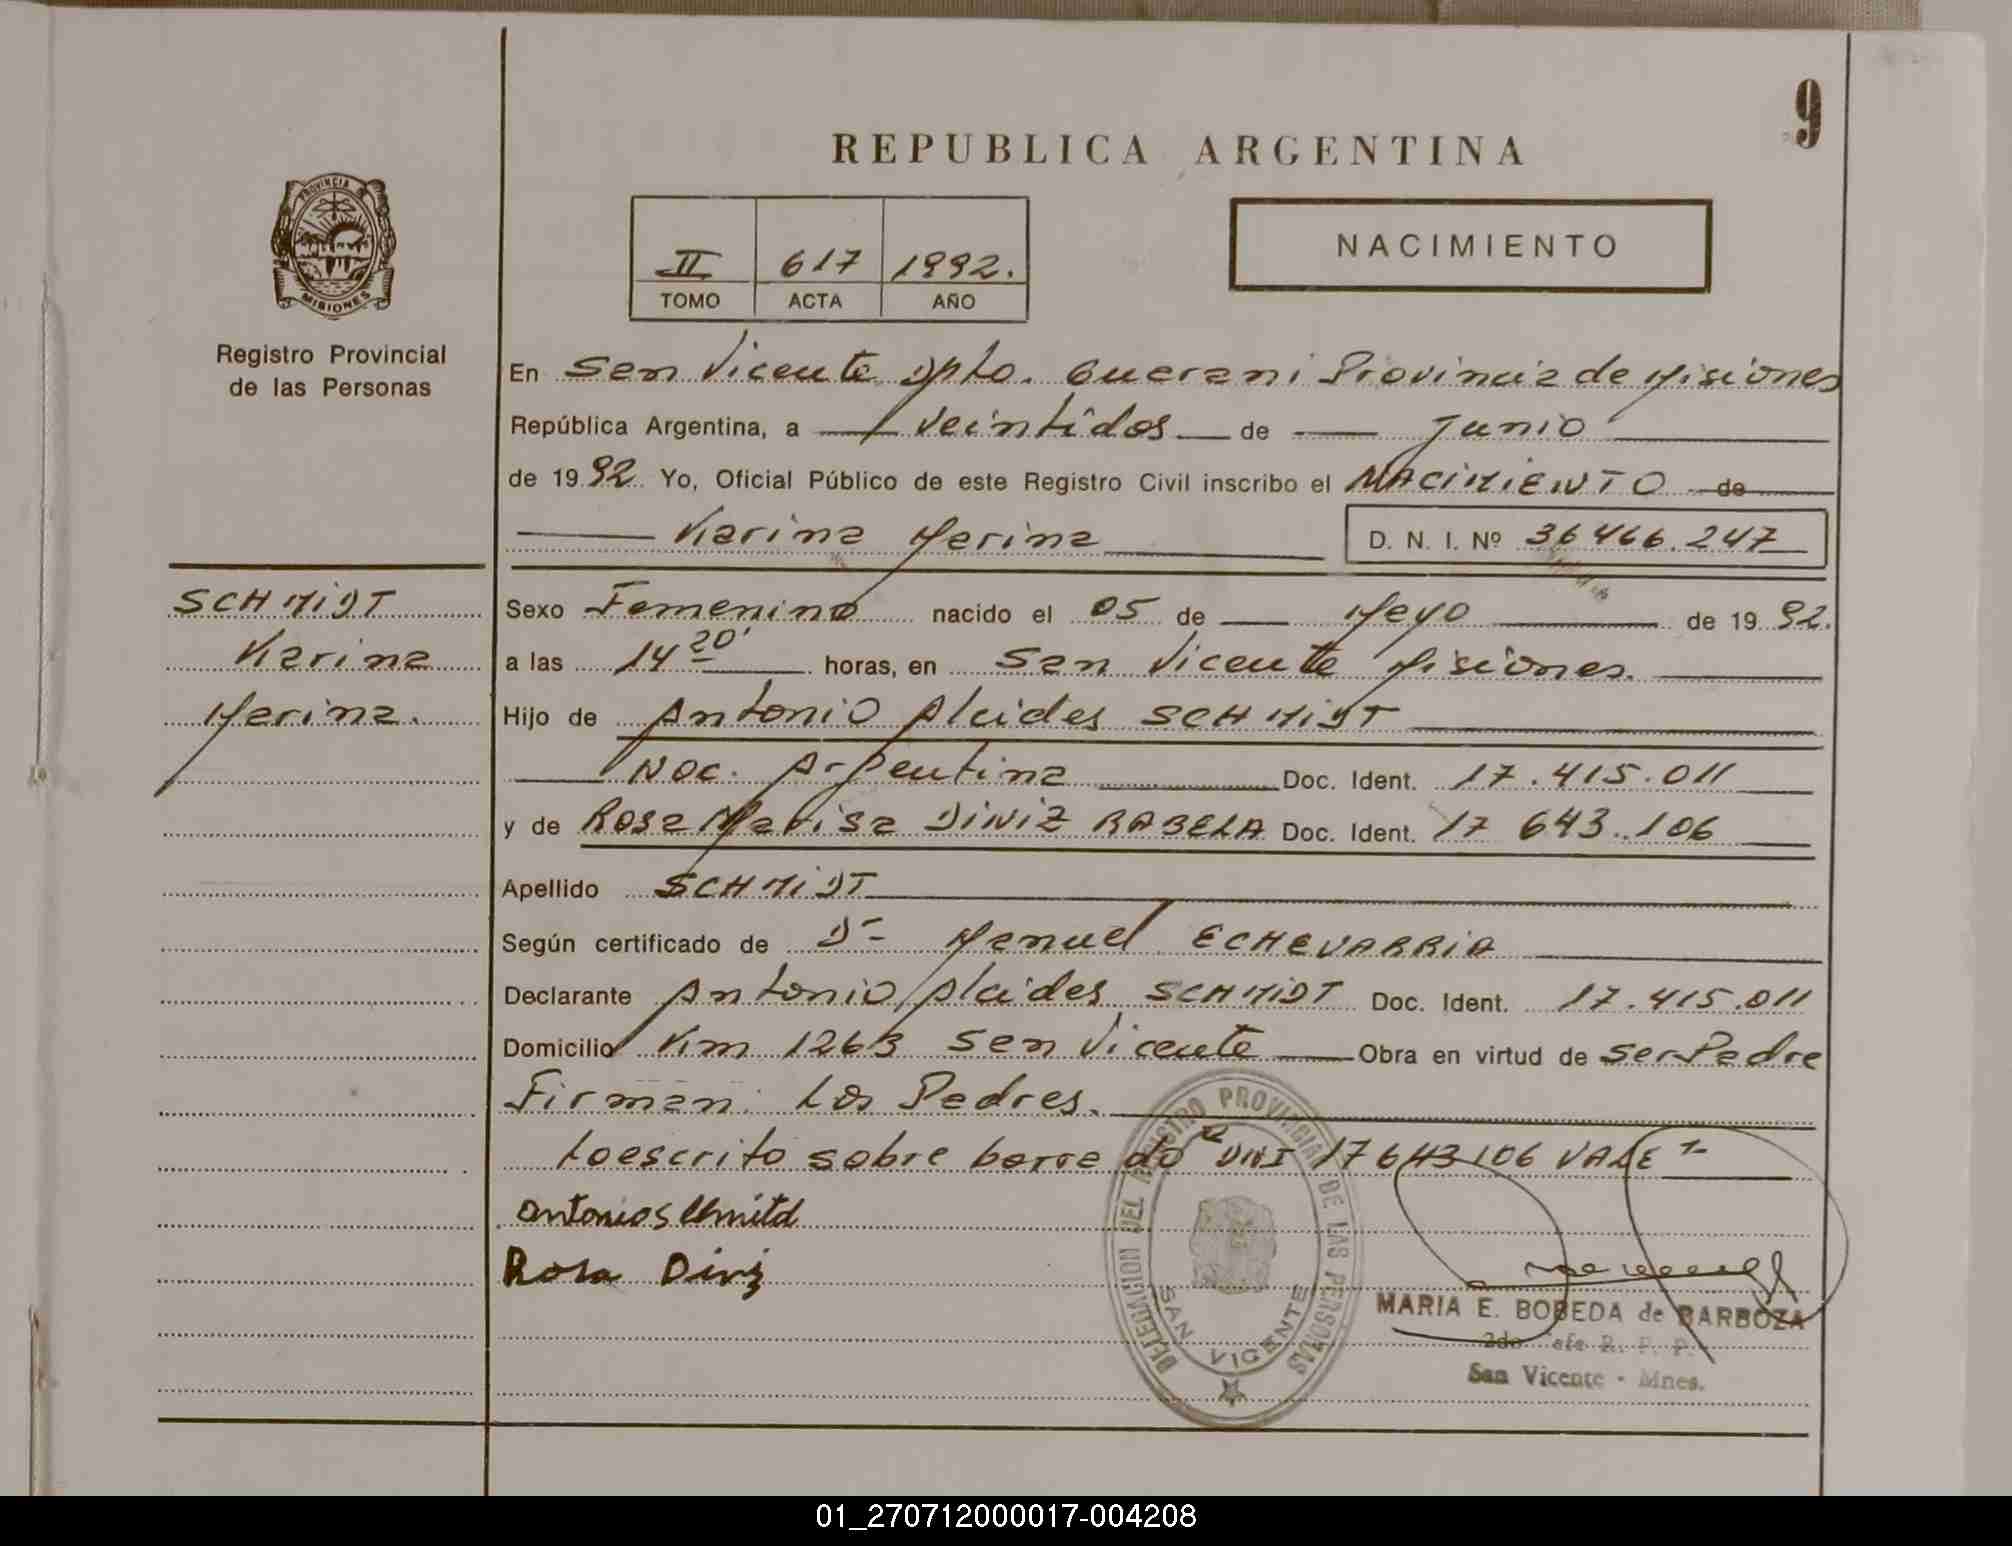 9
REPUBLICA ARGENTINA
PROVINCIA DE
MISIONES
Registro Provincial
de las Personas
II 617 1992.
TOMO ACTA AÑO
NACIMIENTO
En San Vicente Dpto. Guarani Provincia de Misiones
República Argentina, a veintidos de Junio
de 1992 Yo, Oficial Público de este Registro Civil inscribo el NACIMIENTO de
Karina Marina D. N. I. Nº 36466.247
SCHMIDT
Karina
Marina.
Sexo Femenino nacido el 05 de Mayo de 1992.
a las 14 20' horas, en San Vicente Misiones.
Hijo de Antonio Alcides SCHMIDT
Nac. Argentina Doc. Ident. 17.415.011
y de Rosa Marisa DINIZ RABELA Doc. Ident. 17 643.106
Apellido SCHMIDT
Según certificado de Dr Manuel ECHEVARRIA
Declarante Antonio Alcides SCHMIDT Doc. Ident. 17.415.011
Domicilio Km 1263 San Vicente Obra en virtud de ser Padre
Firman: Los Padres.
Lo escrito sobre borrado DNI 17643106 VALE
Antonio Shmitd
Rosa Diniz
DELEGACION DEL REGISTRO PROVINCIAL DE LAS PERSONAS
SAN VICENTE
MARIA E. BOBEDA de BARBOZA
2do Jefe R. P. P.
San Vicente - Mnes.
01_270712000017-004208